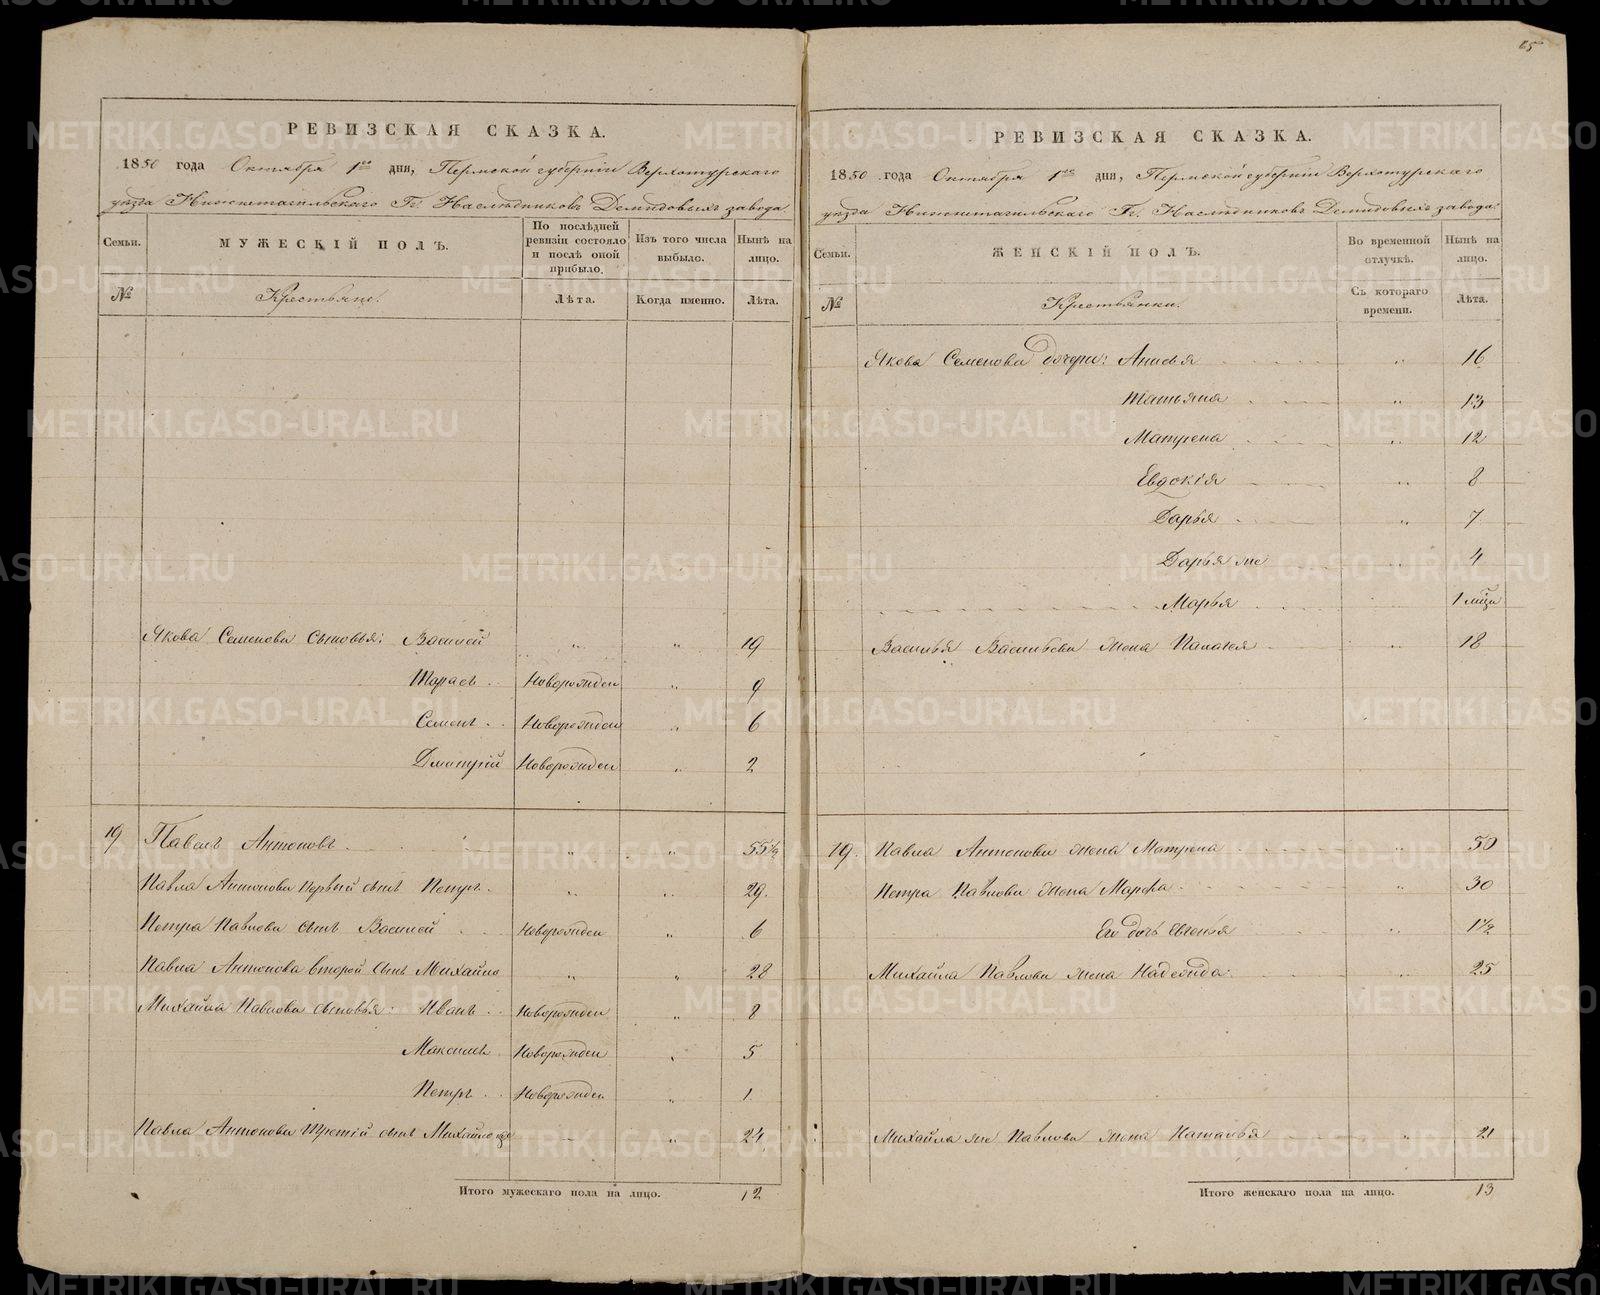 65
РЕВИЗСКАЯ СКАЗКА.
1850 года Октября 1го дня, Пермской губерніи Верхотурскаго
уѣзда Нижнетагильскаго Гг. Наслѣдниковъ Демидовыхъ завода
Семьи. МУЖЕСКІЙ ПОЛЪ. По послѣдней ревизіи состояло и послѣ оной прибыло. Изъ того числа выбыло. Нынѣ на лицо.
№ Крестьяне. Лѣта. Когда именно. Лѣта.
Якова Семенова сыновья: Василей " " 19
Тарасъ Новорожден " 9
Семенъ Новорожден " 6
Дмитрій Новорожден " 2
19 Павелъ Антоновъ " " 55½
Павла Антонова первый сынъ Петръ " " 29
Петра Павлова сынъ Василей Новорожден " 6
Павла Антонова второй сынъ Михайло " " 28
Михайла Павлова сыновья: Иванъ Новорожден " 8
Максимъ Новорожден " 5
Петръ Новорожден " 1
Павла Антонова третій сынъ Михайло же " 24
Итого мужескаго пола на лицо. 12
РЕВИЗСКАЯ СКАЗКА.
1850 года Октября 1го дня, Пермской губерніи Верхотурскаго
уѣзда Нижнетагильскаго Гг. Наслѣдниковъ Демидовыхъ завода
Семьи. ЖЕНСКІЙ ПОЛЪ. Во временной отлучкѣ. Нынѣ на лицо.
№ Крестьянки. Съ котораго времени. Лѣта.
Якова Семенова дочери: Анисья " 16
Татьяна " 13
Матрена " 12
Евдокія " 8
Дарья " 7
Дарья же " 4
Марья 1 мѣц
Василья Васильева жена Палагея " 18
19. Павла Антонова жена Матрена " 50
Петра Павлова жена Марфа " 30
Его дочь " 1½
Михайла Павлова жена Надежда " 25
Михайла же Павлова жена Наталья " 21
Итого женскаго пола на лицо. 13
METRIKI.GASO-URAL.RU